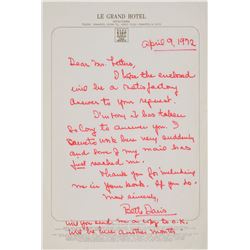 LE GRAND HOTEL
April 9, 1972
Dear Mr. Fetters,
I hope the enclosed
will be a satisfactory
answer to your request.
I'm sorry it has taken
so long to answer you. I
came here very suddenly
and some of my mail has
just reached me.
Thank you for including
me in your book. If you do.
Most sincerely,
Bette Davis
Will you send me a copy to O.K.
Will be here another month.